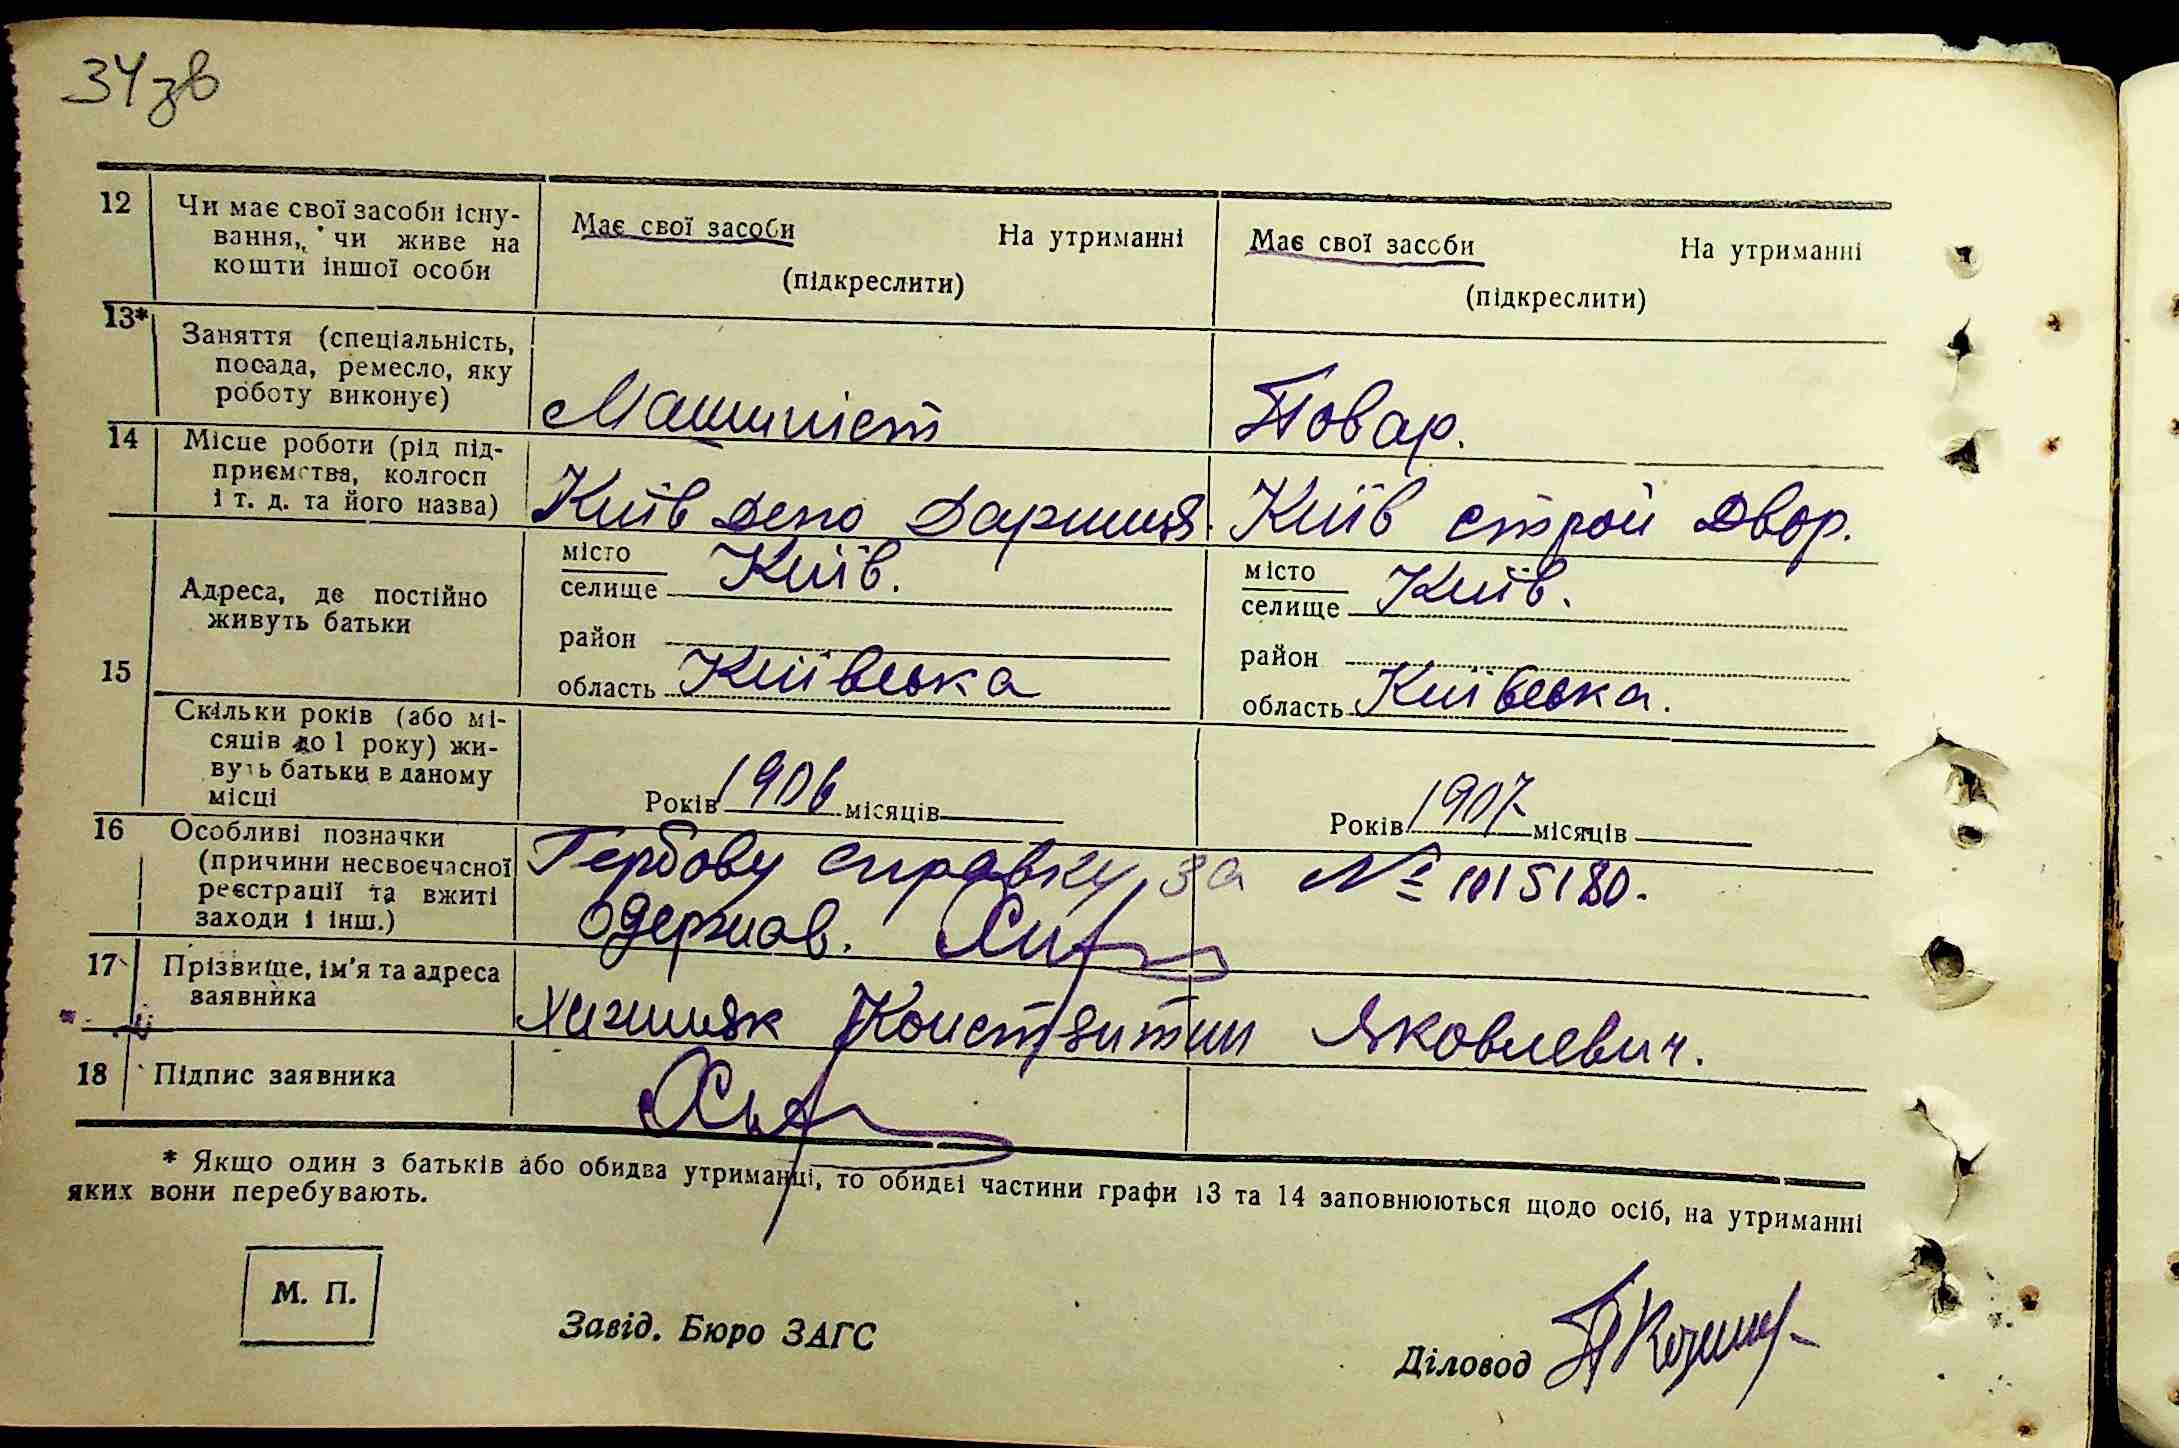 34зв
12 Чи має свої засоби існу-
вання, чи живе на
кошти іншої особи
Має свої засоби На утриманні
(підкреслити)
Має свої засоби На утриманні
(підкреслити)
13* Заняття (спеціальність,
посада, ремесло, яку
роботу виконує)
Машиніст
Повар.
14 Місце роботи (рід під-
приємства, колгосп
і т. д. та його назва)
Київ депо Дарниця.
Київ строй двор.
15 Адреса, де постійно
живуть батьки
місто
селище Київ.
район
область Київська
місто
селище Київ.
район
область Київська.
Скільки років (або мі-
сяців до 1 року) жи-
вуть батьки в даному
місці
Років 1906 місяців
Років 1907 місяців
16 Особливі позначки
(причини несвоєчасної
реєстрації та вжиті
заходи і інш.)
Гербову справку за № 1015180.
одержав.
17 Прізвище, ім'я та адреса
заявника
Хижняк Констянтин Яковлевич.
18 Підпис заявника
* Якщо один з батьків або обидва утриманці, то обидві частини графи 13 та 14 заповнюються щодо осіб, на утриманні
яких вони перебувають.
М. П.
Завід. Бюро ЗАГС
Діловод